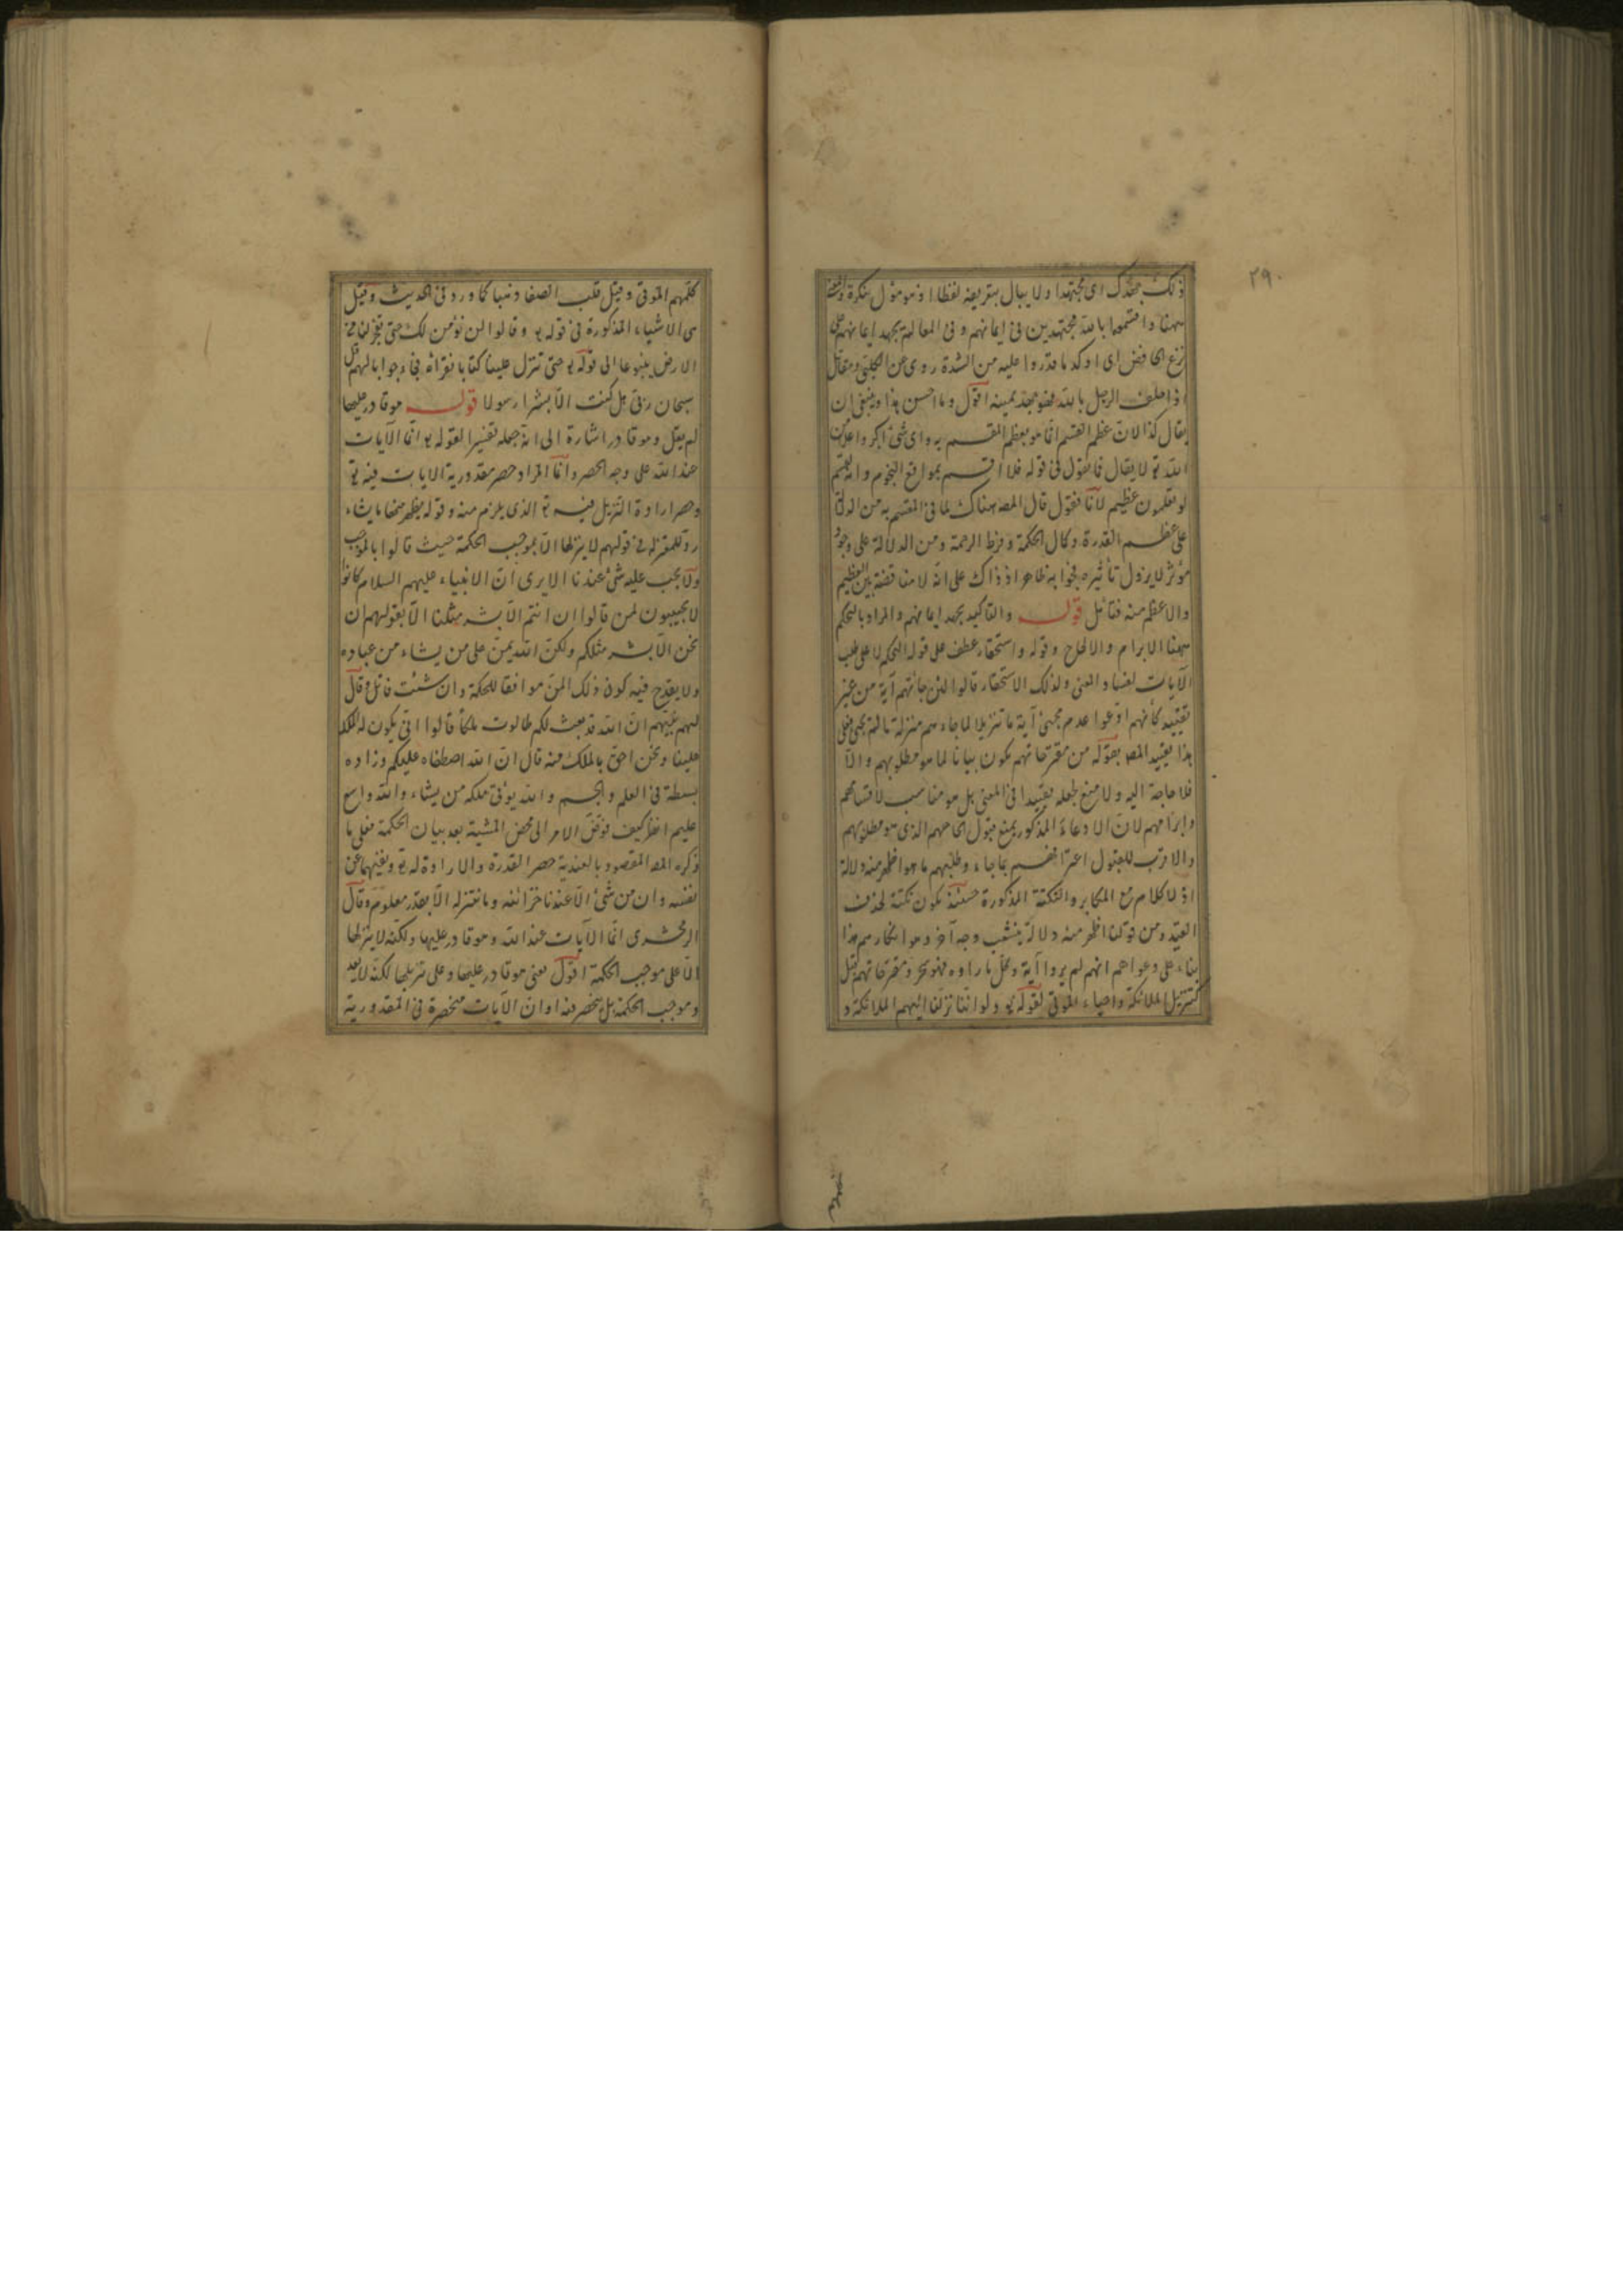 ٢٩٠
ذلك بجهدك اى مجتهدا ولا يبال بتعريفه لفظا اذ هو مؤل بنكرة والمعنى
ههنا واقسموا بالله مجتهدين فى ايمانهم وفى المعالم بجهد ايمانهم على
نزع الخافض اى اوكد ما قدروا عليه من الشدة روى عن الكلبى ومقاتل
اذا حلف الرجل بالله فهو جهد يمينه اقول وما احسن هذا وينبغى ان
يقال كذا لان عظم القسم انما هو بعظم المقسم به واى شئ اكبر واعلا من
الله تع لا يقال فما يقول فى قوله فلا اقسم بمواقع النجوم وانه لقسم
لو تعلمون عظيم لانا نقول قال المصـ هناك لما فى المقسم به من الدلالة
على عظم القدرة وكمال الحكمة وفرط الرحمة ومن الدلالة على وجود
مؤثر لا يزول تأثيره فجوابه ظاهر اذ ذاك على انه لا مناقضة بين العظيم
والاعظم منه فتأمل قوله والتأكيد بجهد ايمانهم والمراد بالتحكم
ههنا الابرام والالحاح وقوله واستحقار عطف على قوله التحكم لا على طلب
الآيات لفساد المعنى ولذلك الاستحقار قالوا لئن جائتهم آية من غير
تقييد كأنهم ادعوا عدم مجئ آية ما تنزيلا لما جاءهم منزلة ما لم يجئ فعلى
هذا تقييد المصـ بقوله من مقترحاتهم يكون بيانا لما هو مطلوبهم والا
فلا حاجة اليه ولا منع لجعله تقييدا فى المعنى بل هو مناسب لاقتناعهم
وابرامهم لان الادعاء المذكور يمنع قبول الحاحهم الذى هو مطلوبهم
والاقرب للقبول اعترافهم بما جاء وطلبهم ما هو اظهر منه دلالة
اذ لا كلام مع المكابر والنكتة المذكورة حسنة يكون نكتة لحذف
القيد ومن قولنا اظهر منه دلالة ينشعب وجه آخر وهو انكارهم هذا
بناء على دعواهم انهم لم يروا آية وكل ما راوه فهو سحر ومقترحاتهم قيل
كتنزيل الملائكة واحياء الموتى لقوله تع ولو اننا نزلنا اليهم الملائكة و
كلمهم الموتى وقيل قلب الصفا ذهبا كما ورد فى الحديث وقيل
هى الاشياء المذكورة فى قوله تع وقالوا لن نؤمن لك حتى تفجر لنا من
الارض ينبوعا الى قوله تع حتى تنزل علينا كتابا نقرأه فجاء جوابا لهم قل
سبحان ربى هل كنت الا بشرا رسولا قوله هو قادر عليها
لم يقل وهو قادر اشارة الى انه جعله تفسيرا لقوله تع انما الآيات
عند الله على وجه الحصر وانما المراد حصر مقدورية الايات فيه تع
وحصر ارادة التنزيل فيه تع الذى يلزم منه وقوله يظهر منها ما يشاء
رد للمعتزله فى قولهم لا ينزلها الا بموجب الحكمة حيث قالوا بالموجب
ولا يجب عليه شئ عندنا الا يرى ان الانبياء عليهم السلام كانوا
لا يجيبون لمن قالوا ان انتم الا بشر مثلنا الا بقولهم ان
نحن الا بشر مثلكم ولكن الله يمن على من يشاء من عباده
ولا يقدح فيه كون ذلك المن موافقا للحكمة وان شئت فاتل وقال
لهم نبيهم ان الله قد بعث لكم طالوت ملكا قالوا انى يكون له الملك
علينا ونحن احق بالملك منه قال ان الله اصطفاه عليكم وزاده
بسطة فى العلم والجسم والله يؤتى ملكه من يشاء والله واسع
عليم انظر كيف فوض الامر الى محض المشية بعد بيان الحكمة فعلى ما
ذكره المصـ المقصود بالعندية حصر القدرة والارادة له تع ونفيهما عن
نفسه وان من شئ الا عندنا خزائنه وما ننزله الا بقدر معلوم وقال
الزمخشرى انما الآيات عند الله وهو قادر عليها ولكنه لا ينزلها
الا على موجب الحكمة اقول معنى هو قادر عليها وعلى تنزيلها لكنه لا
وموجب الحكمة بل ينحصر فيه او ان الآيات منحصرة فى المقدورية